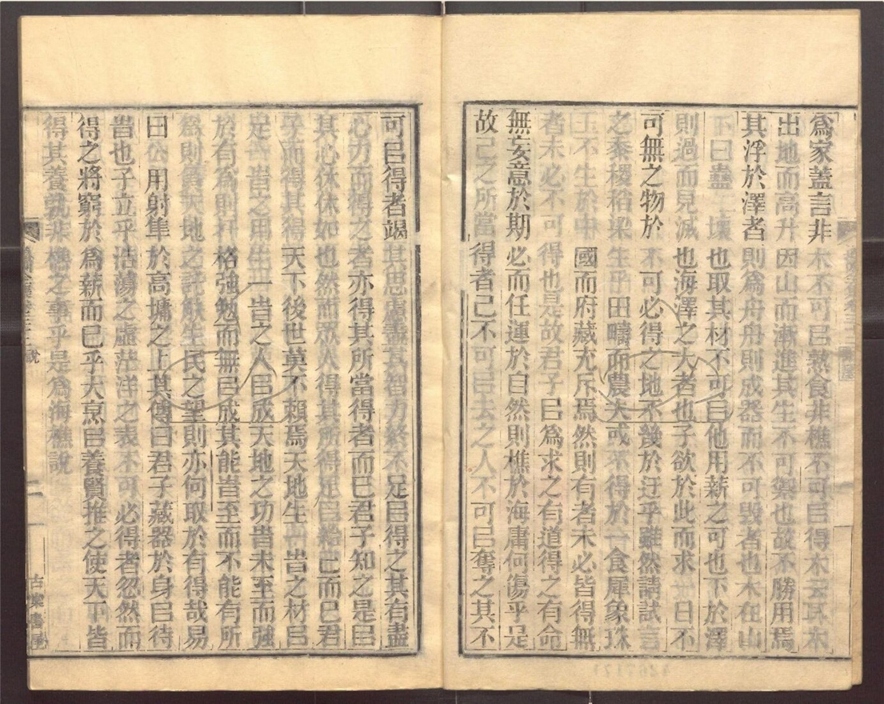 爲家蓋言非木不可㠯熱食非樵不可㠯得木云耳木
出地而高升因山而漸進其生不可禦也故不勝用焉
其浮於澤者則爲舟舟則成器而不可毀者也木在山
下曰蠱壞也取其材不可㠯他用薪之可也下於澤
則過而見滅也海澤之大者也子欲於此而求一日不
可無之物於不可必得之地不幾於迂乎雖然請試言
之黍稷稻粱生乎田疇而農夫或不得於一食犀象珠
玉不生於中國而府藏充斥焉然則有者未必皆得無
者未必不可得也是故君子㠯爲求之有道得之有命
無妄意於期必而任運於自然則樵於海庸何傷乎是
故己之所當得者己不可㠯去之人不可㠯奪之其不
可㠯得者竭其思慮盡其智力終不足㠯得之其有盡
心力而得之者亦得其所當得者而已君子知之是㠯
其心休休如也然而眾人得其所得足㠯給己而已君
子而得其得天下後世莫不賴焉天地生一時之材㠯
足一時之用生一時之人㠯成天地之功時未至而強
於有爲則扞格強勉而無㠯成其能時至而不能有所
爲則負天地之託觖生民之望則亦何取於有得哉易
曰公用射隼於高墉之上其傳曰君子藏器於身㠯待
時也子立乎浩蕩之虛茫洋之表不可必得者忽然而
得之將窮於爲薪而已乎大烹㠯養賢推之使天下皆
得其養孰非樵之事乎是爲海樵說